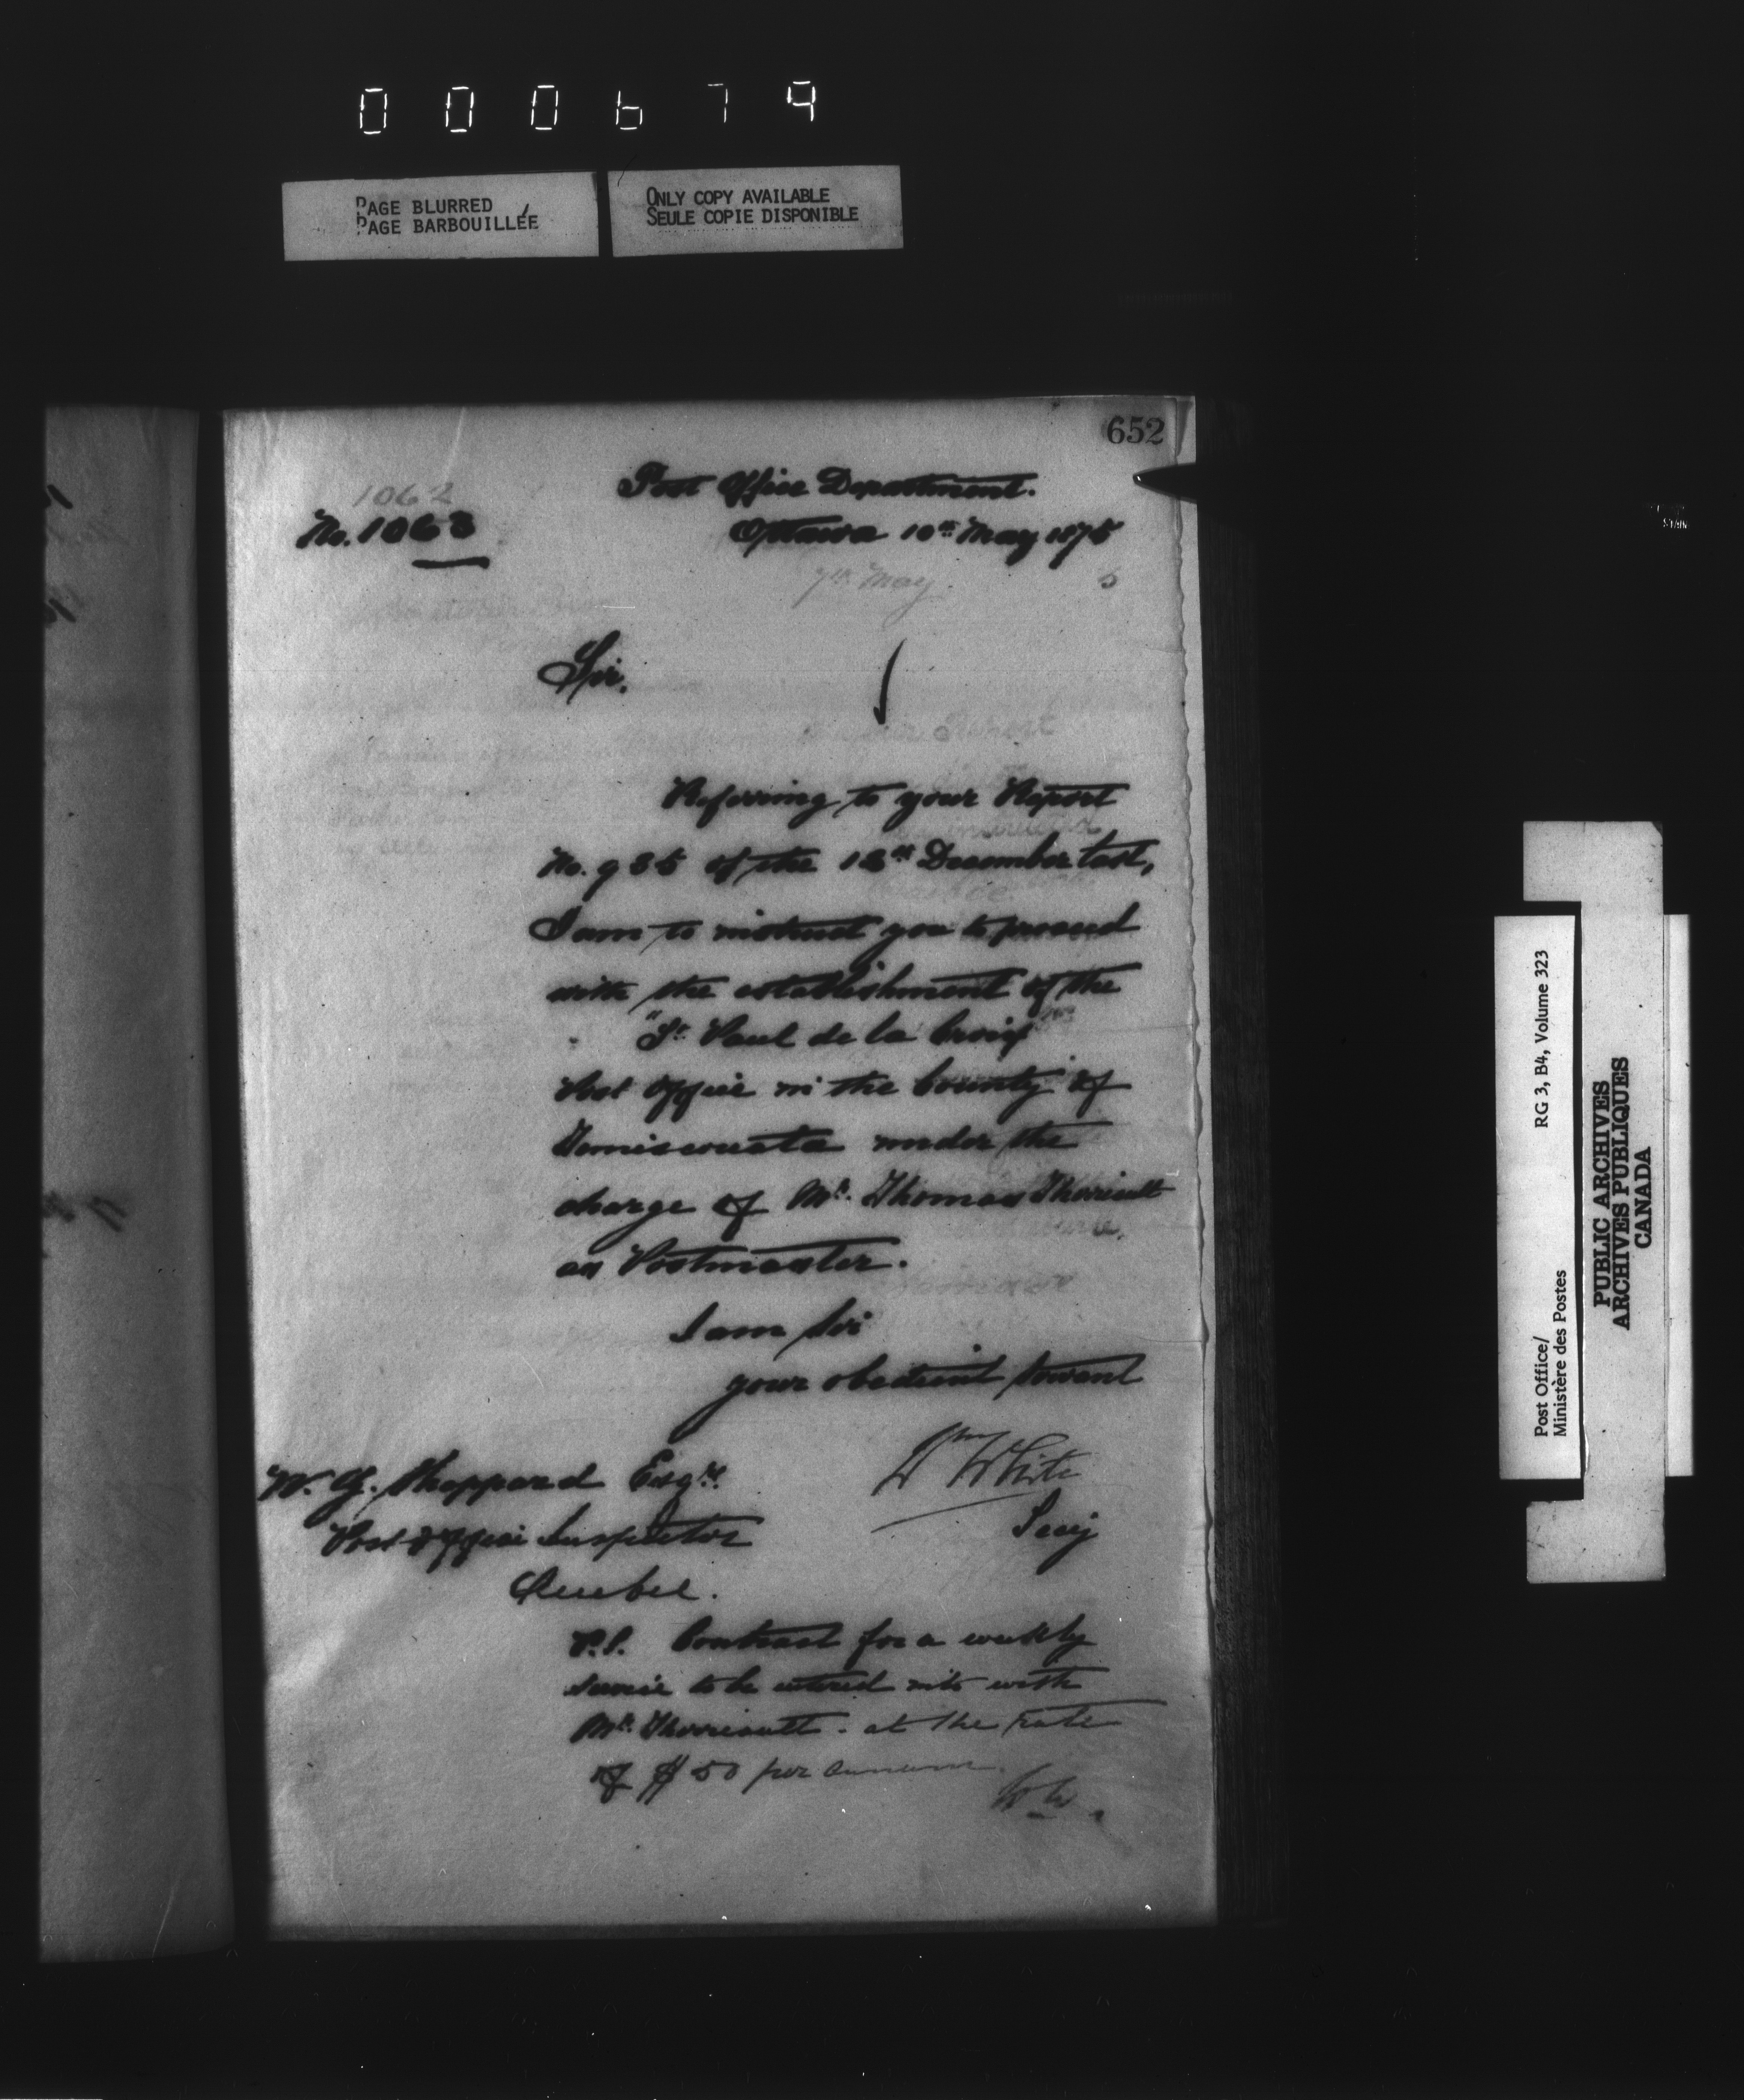 000679
PAGE BLURRED
PAGE BARBOUILLÉE
ONLY COPY AVAILABLE
SEULE COPIE DISPONIBLE
652
1062
Post Office Department.
No. 1063
Ottawa 10th May 1875
7th May 5
Sir.
Referring to your Report
No. 935 of the of the December last,
I am to instruct you to proceed
with the establishment of the
"St. Paul de la Croix"
Post Office in the County of
Temiscouata under the
charge of Mr. Thomas Theriault
as Postmaster.
I am Sir
your obedient servant
W. G. Sheppard Esqre.
Wm White
Post Office Inspector
Secy
Quebec.
P.S. Contract for a weekly
service to be entered into with
Mr. Therriault. at the rate
of $50 per annum.
WW.
Post Office/
Ministère des Postes
RG 3, B4, Volume 323
PUBLIC ARCHIVES
ARCHIVES PUBLIQUES
CANADA